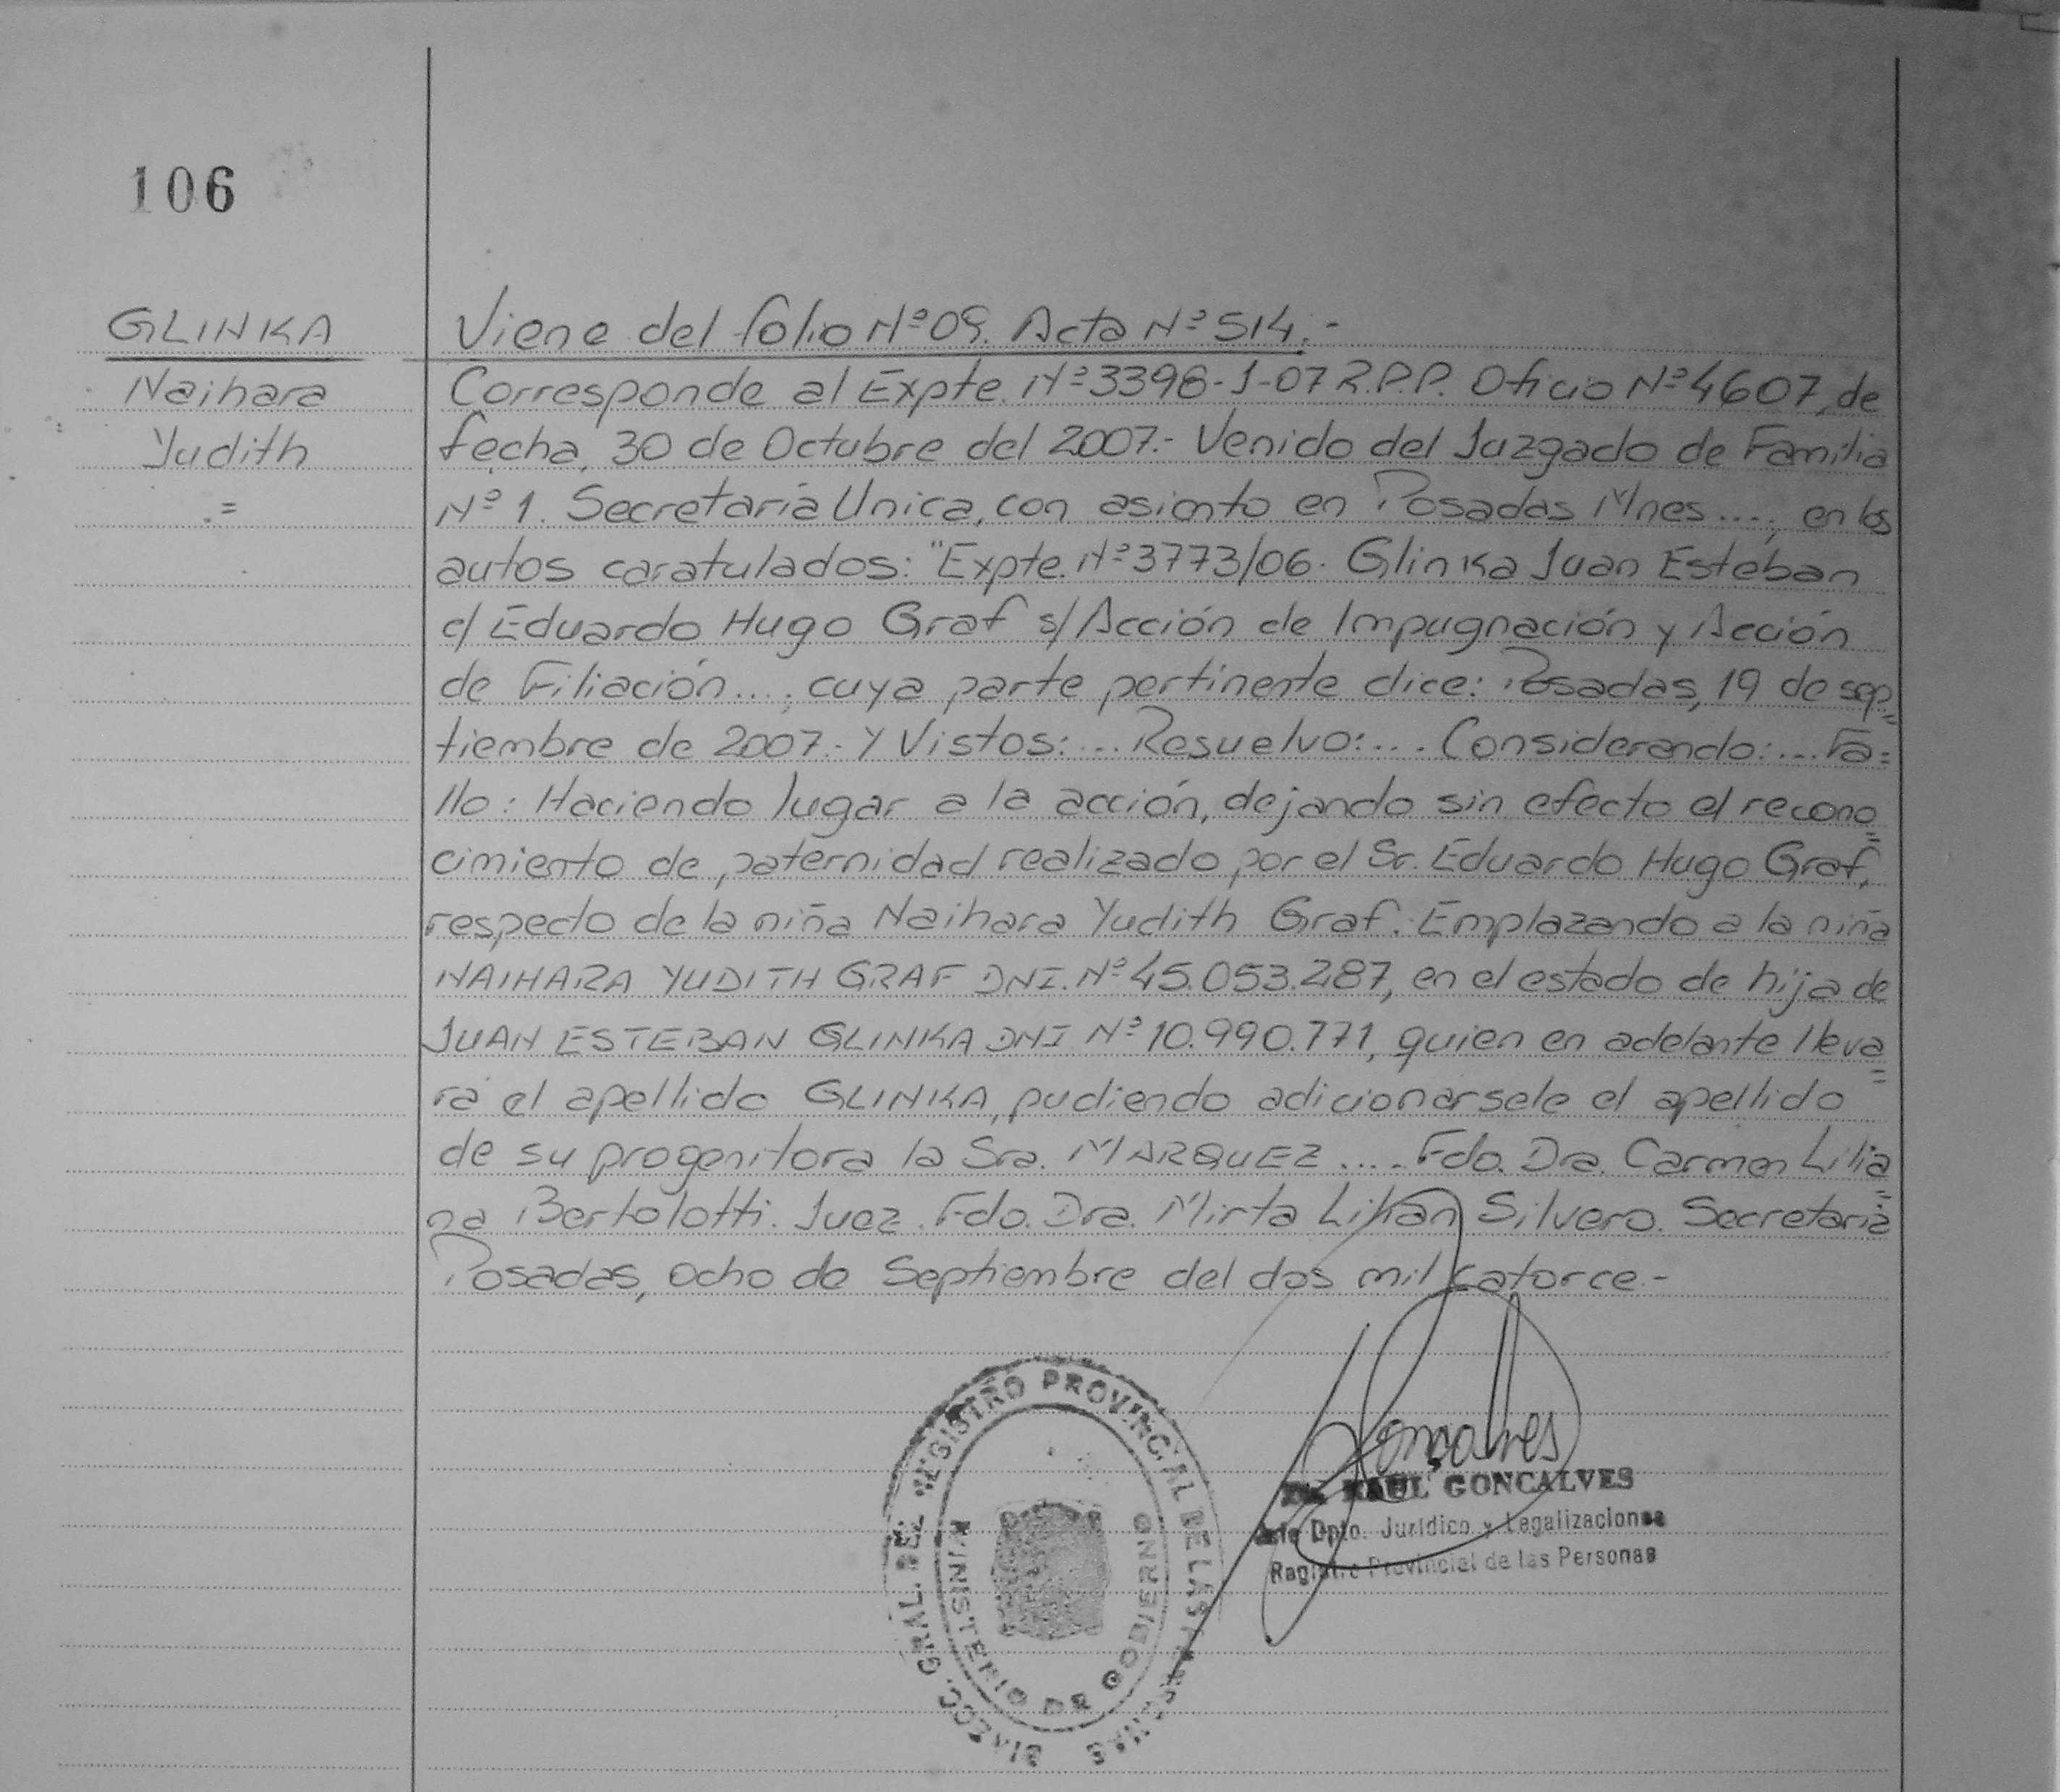 106
GLINKA
Naihara
Yudith
.=
Viene del folio Nº 09. Acta Nº 514.-
Corresponde al Expte. Nº 3396-J-07 R.P.P. Oficio Nº 4607, de
fecha, 30 de Octubre del 2007.- Venido del Juzgado de Familia
Nº 1. Secretaría Unica, con asiento en Posadas Mnes...., en los
autos caratulados: "Expte. Nº 3773/06. Glinka Juan Esteban
c/ Eduardo Hugo Graf s/ Acción de Impugnación y Acción
de Filiación...., cuya parte pertinente dice: Posadas, 19 de sep=
tiembre de 2007.- Y Vistos:... Resuelvo:.... Considerando:... Fa=
llo: Haciendo lugar a la acción, dejando sin efecto el recono=
cimiento de paternidad realizado por el Sr. Eduardo Hugo Graf,
respecto de la niña Naihara Yudith Graf. Emplazando a la niña
NAIHARA YUDITH GRAF DNI. Nº 45.053.287, en el estado de hija de
JUAN ESTEBAN GLINKA DNI Nº 10.990.771, quien en adelante lleva=
rá el apellido GLINKA, pudiendo adicionarsele el apellido
de su progenitora la Sra. MARQUEZ.... Fdo. Dra. Carmen Lilia=
na Bertolotti. Juez. Fdo. Dra. Mirta Lilian Silvero. Secretaria
Posadas, ocho de Septiembre del dos mil catorce.-
DIRECC. GRAL. DEL REGISTRO PROVINCIAL DE LAS PERSONAS
MINISTERIO DE GOBIERNO
Gonçalves
RAUL GONCALVES
Jefe Dpto. Jurídico y Legalizaciones
Registro Provincial de las Personas